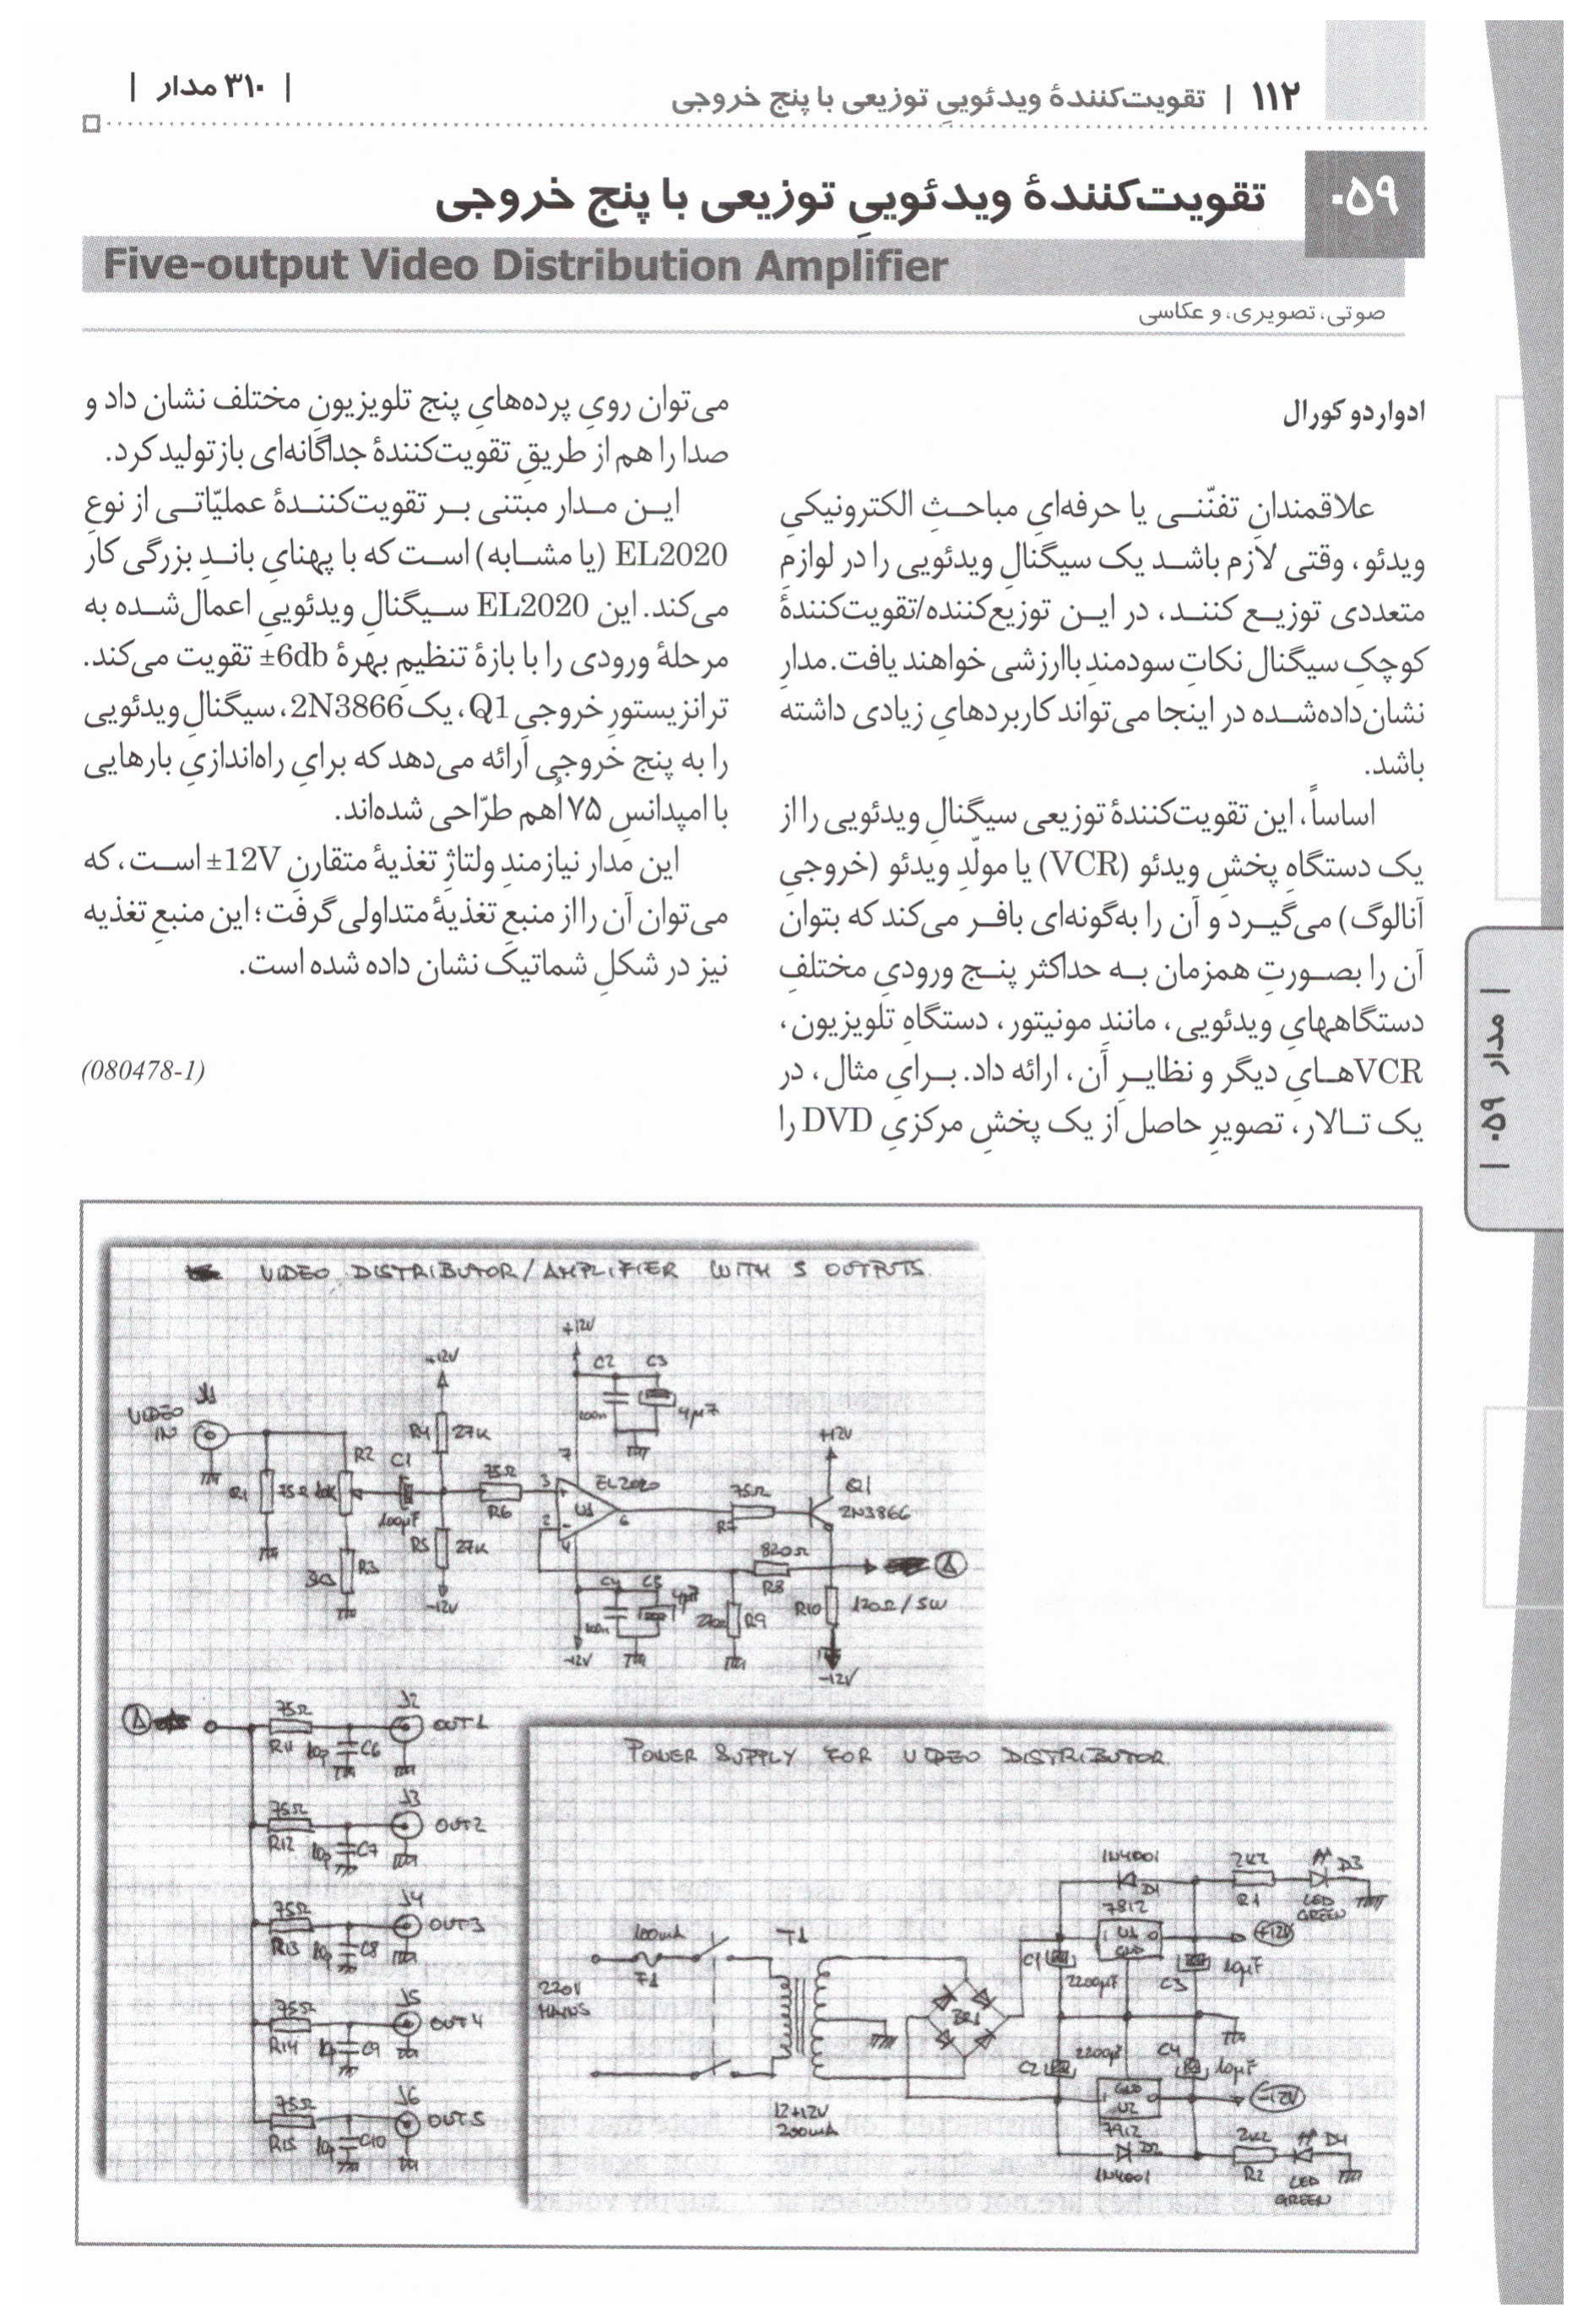 ۱۱۲ | تقویت‌کنندهٔ ویدئوییِ توزیعی با پنج خروجی
| ۳۱۰ مدار |
۰۵۹
تقویت‌کنندهٔ ویدئوییِ توزیعی با پنج خروجی
Five-output Video Distribution Amplifier
صوتی، تصویری، و عکاسی
ادواردو کورال
علاقمندانِ تفنّنی یا حرفه‌ایِ مباحثِ الکترونیکیِ
ویدئو، وقتی لازم باشد یک سیگنالِ ویدئویی را در لوازمِ
متعددی توزیع کنند، در این توزیع‌کننده/تقویت‌کنندهٔ
کوچکِ سیگنال نکاتِ سودمندِ باارزشی خواهند یافت. مدارِ
نشان‌داده‌شده در اینجا می‌تواند کاربردهایِ زیادی داشته
باشد.
اساساً، این تقویت‌کنندهٔ توزیعی سیگنالِ ویدئویی را از
یک دستگاهِ پخشِ ویدئو (VCR) یا مولّدِ ویدئو (خروجیِ
آنالوگ) می‌گیرد و آن را به‌گونه‌ای بافر می‌کند که بتوان
آن را بصورتِ همزمان به حداکثر پنج ورودیِ مختلفِ
دستگاههایِ ویدئویی، مانندِ مونیتور، دستگاهِ تلویزیون،
VCRهایِ دیگر و نظایرِ آن، ارائه داد. برایِ مثال، در
یک تالار، تصویرِ حاصل از یک پخشِ مرکزیِ DVD را
می‌توان رویِ پرده‌هایِ پنج تلویزیونِ مختلف نشان داد و
صدا را هم از طریقِ تقویت‌کنندهٔ جداگانه‌ای بازتولید کرد.
این مدار مبتنی بر تقویت‌کنندهٔ عملیّاتی از نوعِ
EL2020 (یا مشابه) است که با پهنایِ باندِ بزرگی کار
می‌کند. این EL2020 سیگنالِ ویدئوییِ اعمال‌شده به
مرحلهٔ ورودی را با بازهٔ تنظیمِ بهرهٔ ±6db تقویت می‌کند.
ترانزیستورِ خروجیِ Q1، یک 2N3866، سیگنالِ ویدئویی
را به پنج خروجی ارائه می‌دهد که برایِ راه‌اندازیِ بارهایی
با امپدانسِ ۷۵ اُهم طرّاحی شده‌اند.
این مدار نیازمندِ ولتاژِ تغذیهٔ متقارنِ ±12V است، که
می‌توان آن را از منبعِ تغذیهٔ متداولی گرفت؛ این منبعِ تغذیه
نیز در شکلِ شماتیک نشان داده شده است.
(080478-1)
| مدار ۰۵۹ |
VIDEO DISTRIBUTOR/AMPLIFIER WITH 5 OUTPUTS.
+12V
+12V
C2 C3
100n 4µ7
J1
VIDEO IN
R4 27K
R1 75Ω
10K R2
C1
100µF
R3
R5 27K
-12V
75Ω
R6
3 2 7 4 6
EL2020
U1
75Ω
R7
+12V
Q1
2N3866
820Ω
R8
A
C4 C5
100n 4µ7
-12V
R9
R10 120Ω/5W
-12V
A
75Ω J2
R11 10p C6 OUT1
75Ω J3
R12 10p C7 OUT2
75Ω J4
R13 10p C8 OUT3
75Ω J5
R14 10p C9 OUT4
75Ω J6
R15 10p C10 OUT5
POWER SUPPLY FOR VIDEO DISTRIBUTOR.
220V
MAINS
100mA
F1
T1
12+12V
200mA
BR1
1N4001
D1
7812
U1
GND
C1
2200µF
C3
10µF
2K2
R1
D3
LED
GREEN
+12V
C2
2200µF
C4
10µF
GND
U2
7912
D2
1N4001
-12V
2K2
R2
D4
LED
GREEN